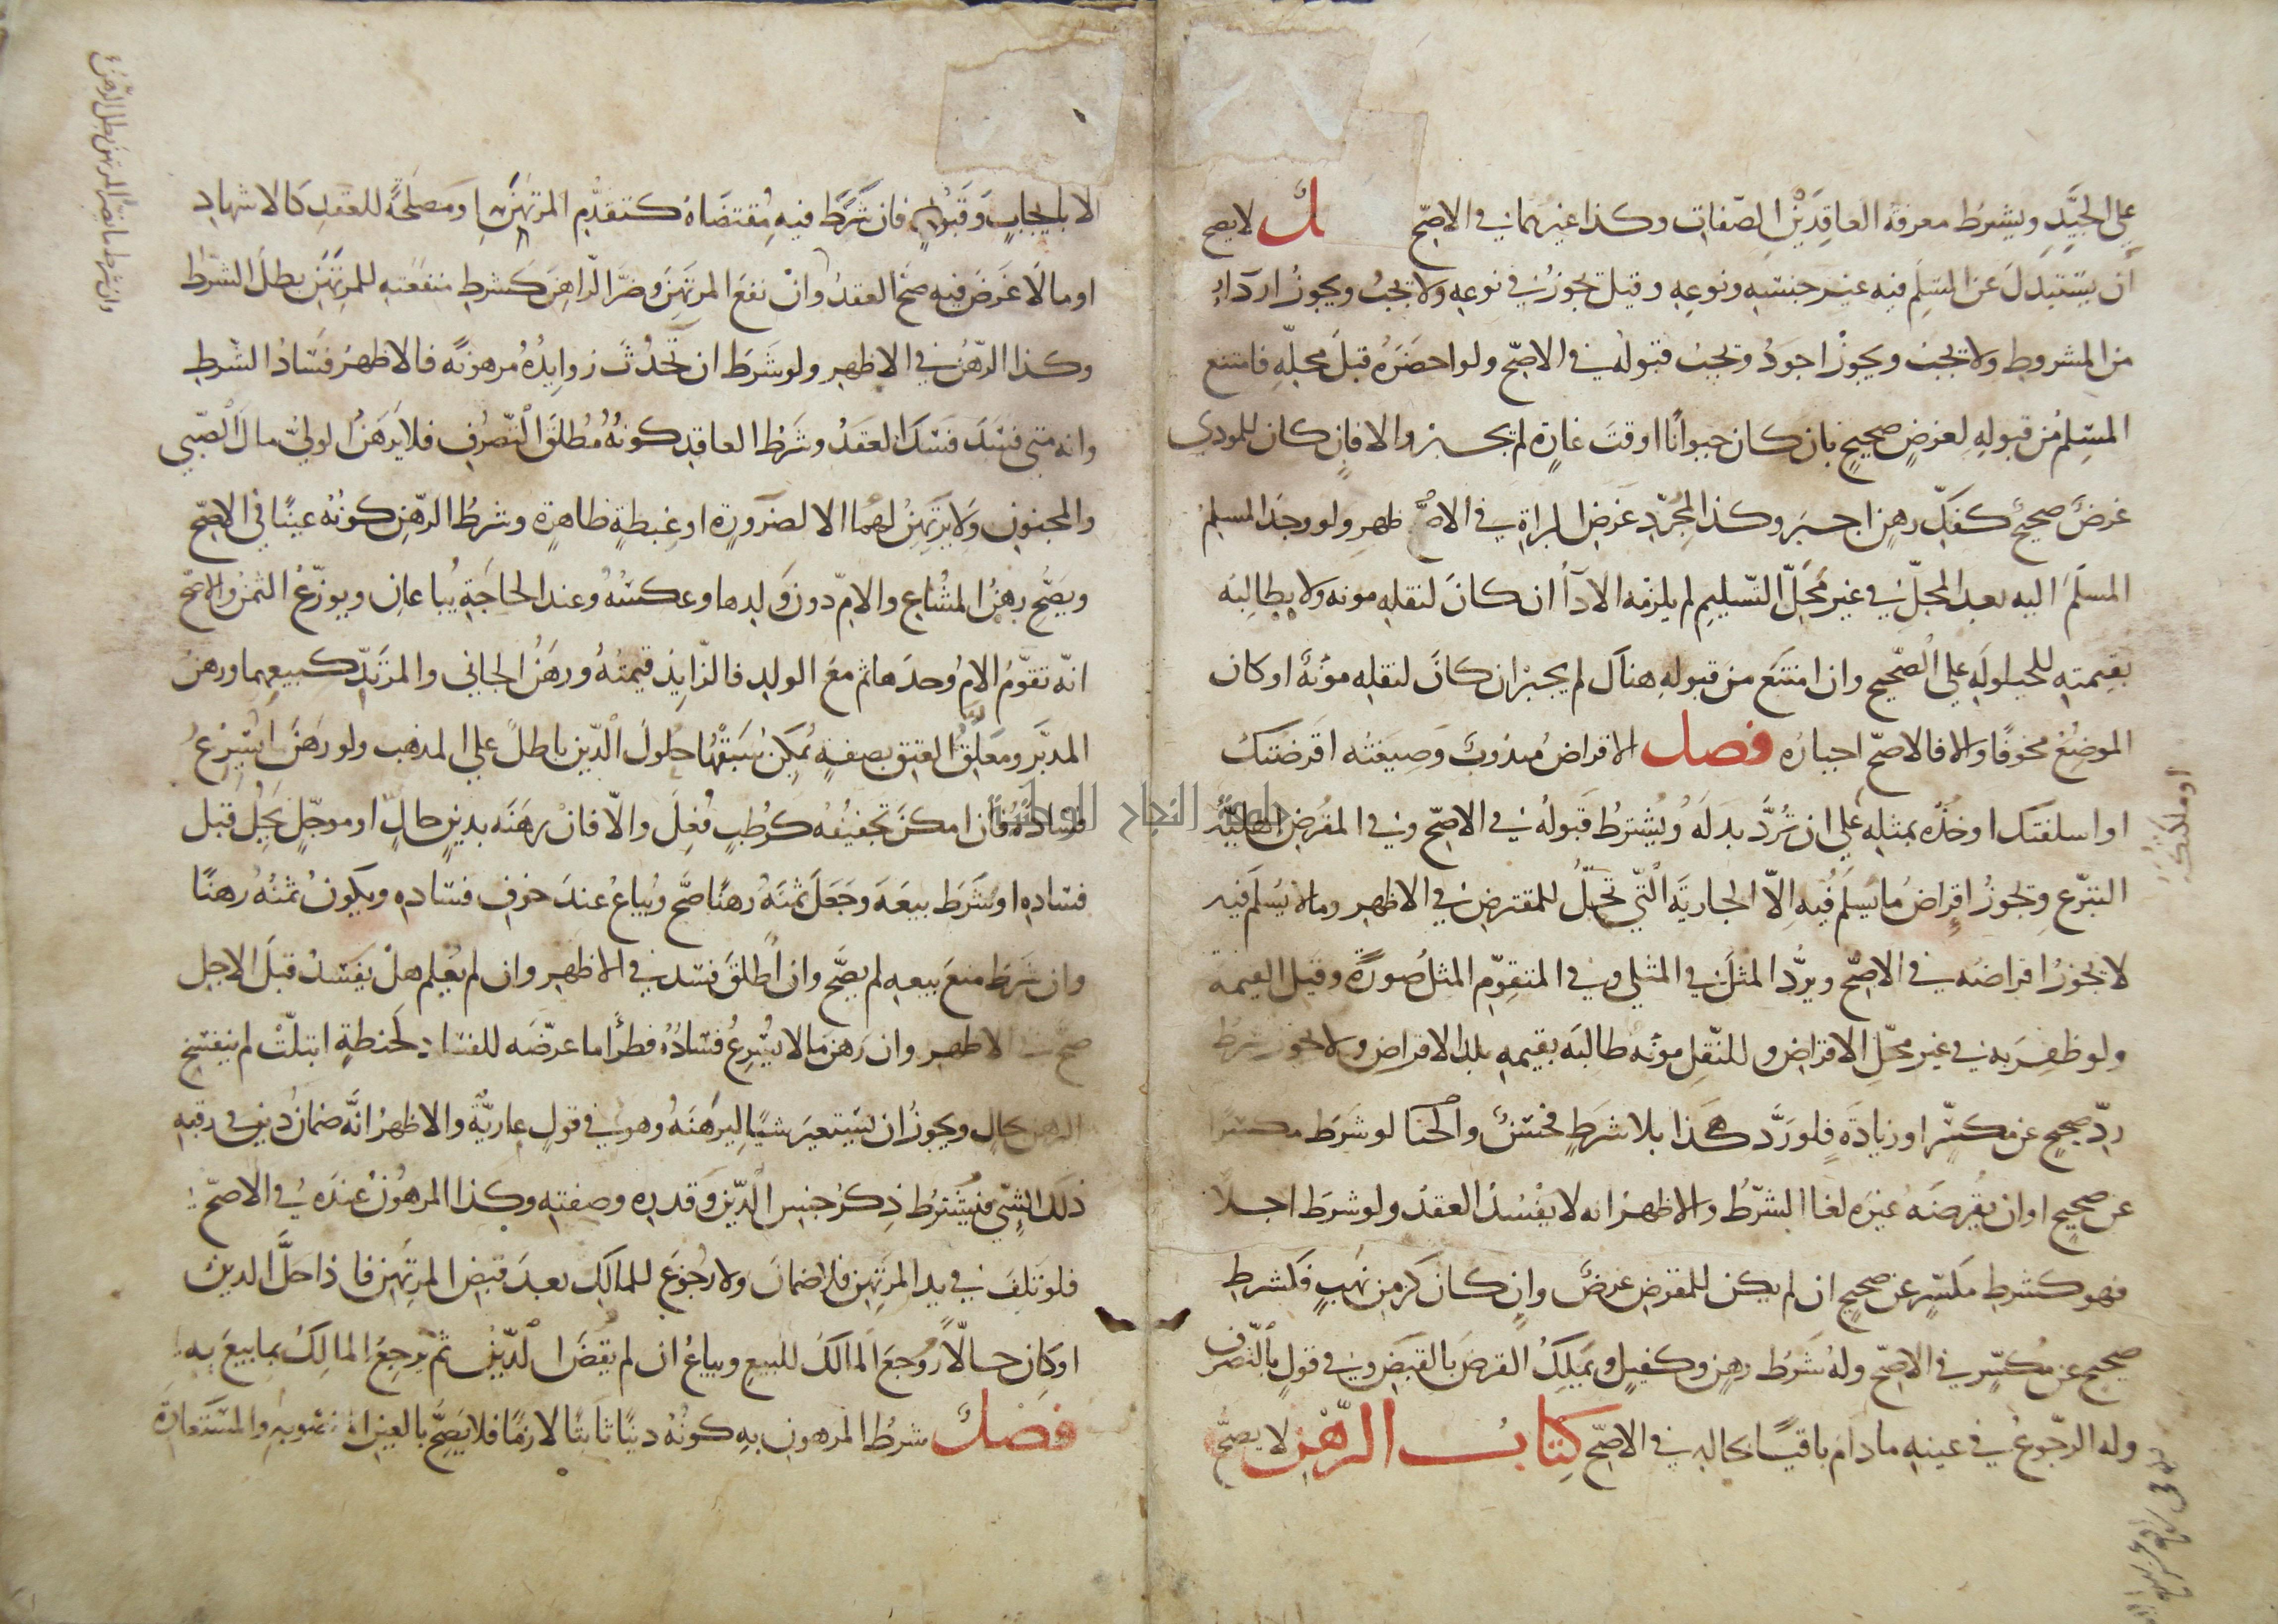 على الجيد ويشترط معرفة العاقدين الصفات وكذا غيرهما في الاصح لا يصح
ان يستبدل عن المسلم فيه غير جنسه ونوعه وقيل يجوز في نوعه ولا يجب ويجوز اردا
من المشروط ولا يجب ويجوز اجود ويجب قبوله في الاصح ولو احضره قبل محله فامتنع
المسلم من قبوله لغرض صحيح بان كان حيوانا او وقت غارة لم يجبر والا فان كان للمودي
غرض صحيح كفك رهن اجبر وكذا لمجرد غرض البراة في الاظهر ولو وجد المسلم
المسلم اليه بعد المحل في غير محل التسليم لم يلزمه الادآ ان كان لنقله مونه ولا يطالبه
بقيمته للحيلوله على الصحيح وان امتنع من قبوله هناك لم يجبر ان كان لنقله مؤنة او كان
الموضع مخوفا والا فالاصح اجباره فصل الاقراض مندوب وصيغته اقرضتك
او اسلفتك او خذه بمثله على ان ترد بدله ويشترط قبوله في الاصح وفي المقرض اهلية
التبرع ويجوز اقراض ما يسلم فيه الا الجارية التي تحل للمقترض في الاظهر وما لا يسلم فيه
لا يجوز اقراضه في الاصح ويرد المثل في المثلي وفي المتقوم المثل صورة وقيل القيمة
ولو ظفر به في غير محل الاقراض وللنقل مؤنه طالبه بقيمه بلد الاقراض ولا يجوز بشرط
رد صحيح عن مكسر او زيادة فلو رد هكذا بلا شرط فحسن ولو شرط مكسرا
عن صحيح او ان يقرضه غيره لغا الشرط والاظهر انه لا يفسد العقد ولو شرط اجلا
فهو كشرط مكسر عن صحيح ان لم يكن للمقرض غرض وان كان كزمن نهب فكشرط
صحيح عن مكسر في الاصح وله شرط رهن وكفيل ويملك القرض بالقبض وفي قول بالتصرف
وله الرجوع في عينه مادام باقيا بحاله في الاصح كتاب الرهن لا يصح
او ملكتك
الا بايجاب وقبول فان شرط فيه مقتضاه كتقدم المرتهن او مصلحة للعقد كالاشهاد
او مالا غرض فيه صح العقد وان نفع المرتهن وضر الراهن كشرط منفعته للمرتهن بطل الشرط
وكذا الرهن في الاظهر ولو شرط ان تحدث زوايده مرهونه فالاظهر فساد الشرط
وانه متى فسد فسد العقد وشرط العاقد كونه مطلق التصرف فلا يرهن الولي مال الصبي
والمجنون ولا يرتهن لهما الا لضرورة او غبطة ظاهرة وشرط الرهن كونه عينا في الاصح
ويصح رهن المشاع والام دون ولدها وعكسه وعند الحاجة يباعان ويوزع الثمن والاصح
انه تقوم الام وحدها ثم مع الولد فالزايد قيمته ورهن الجاني والمرتد كبيعهما ورهن
المدبر ومعلق العتق بصفة يمكن سبقها حلول الدين باطل على المذهب ولو رهن ما يسرع
فساده فان امكن تجفيفه كرطب فعل والا فان رهنه بدين حال او موجل يحل قبل
فساده او شرط بيعه وجعل ثمنه رهنا صح ويباع عند خوف فساده ويكون ثمنه رهنا
وان شرط منع بيعه لم يصح وان اطلق فسد في الاظهر وان لم يعلم هل يفسد قبل الاجل
صح في الاظهر وان رهن مالا يسرع فساده فطرا ما عرضه للفساد كحنطة ابتلت لم ينفسخ
الرهن بحال ويجوز ان يستعير شيا ليرهنه وهو في قول عارية والاظهر انه ضمان دين في رقبه
ذلك الشي فيشترط ذكر جنس الدين وقدره وصفته وكذا المرهون عنده في الاصح
فلو تلف في يد المرتهن فلا ضمان ولا رجوع للمالك بعد قبض المرتهن فاذا حل الدين
او كان حالا روجع المالك للبيع ويباع ان لم يقض الدين ثم يرجع المالك بما بيع به
فصل شرط المرهون به كونه دينا ثابتا لازما فلا يصح بالعين المغصوبه والمستعارة
وان شرط ما يضر المرتهن بطل الرهن